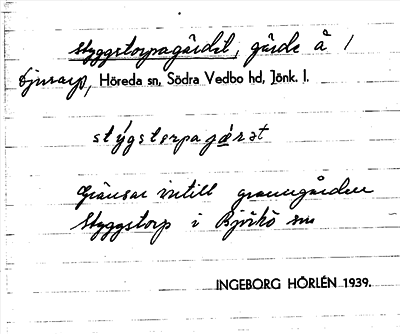 Styggstorpagärdet, gärde å 1
Djurarp, Höreda sn, Södra Vedbo hd, Jönk. l.
stýgstorpagæ̀rət
Gränsar intill granngården
Styggstorp i Björkö sn
INGEBORG HÖRLÉN 1939.